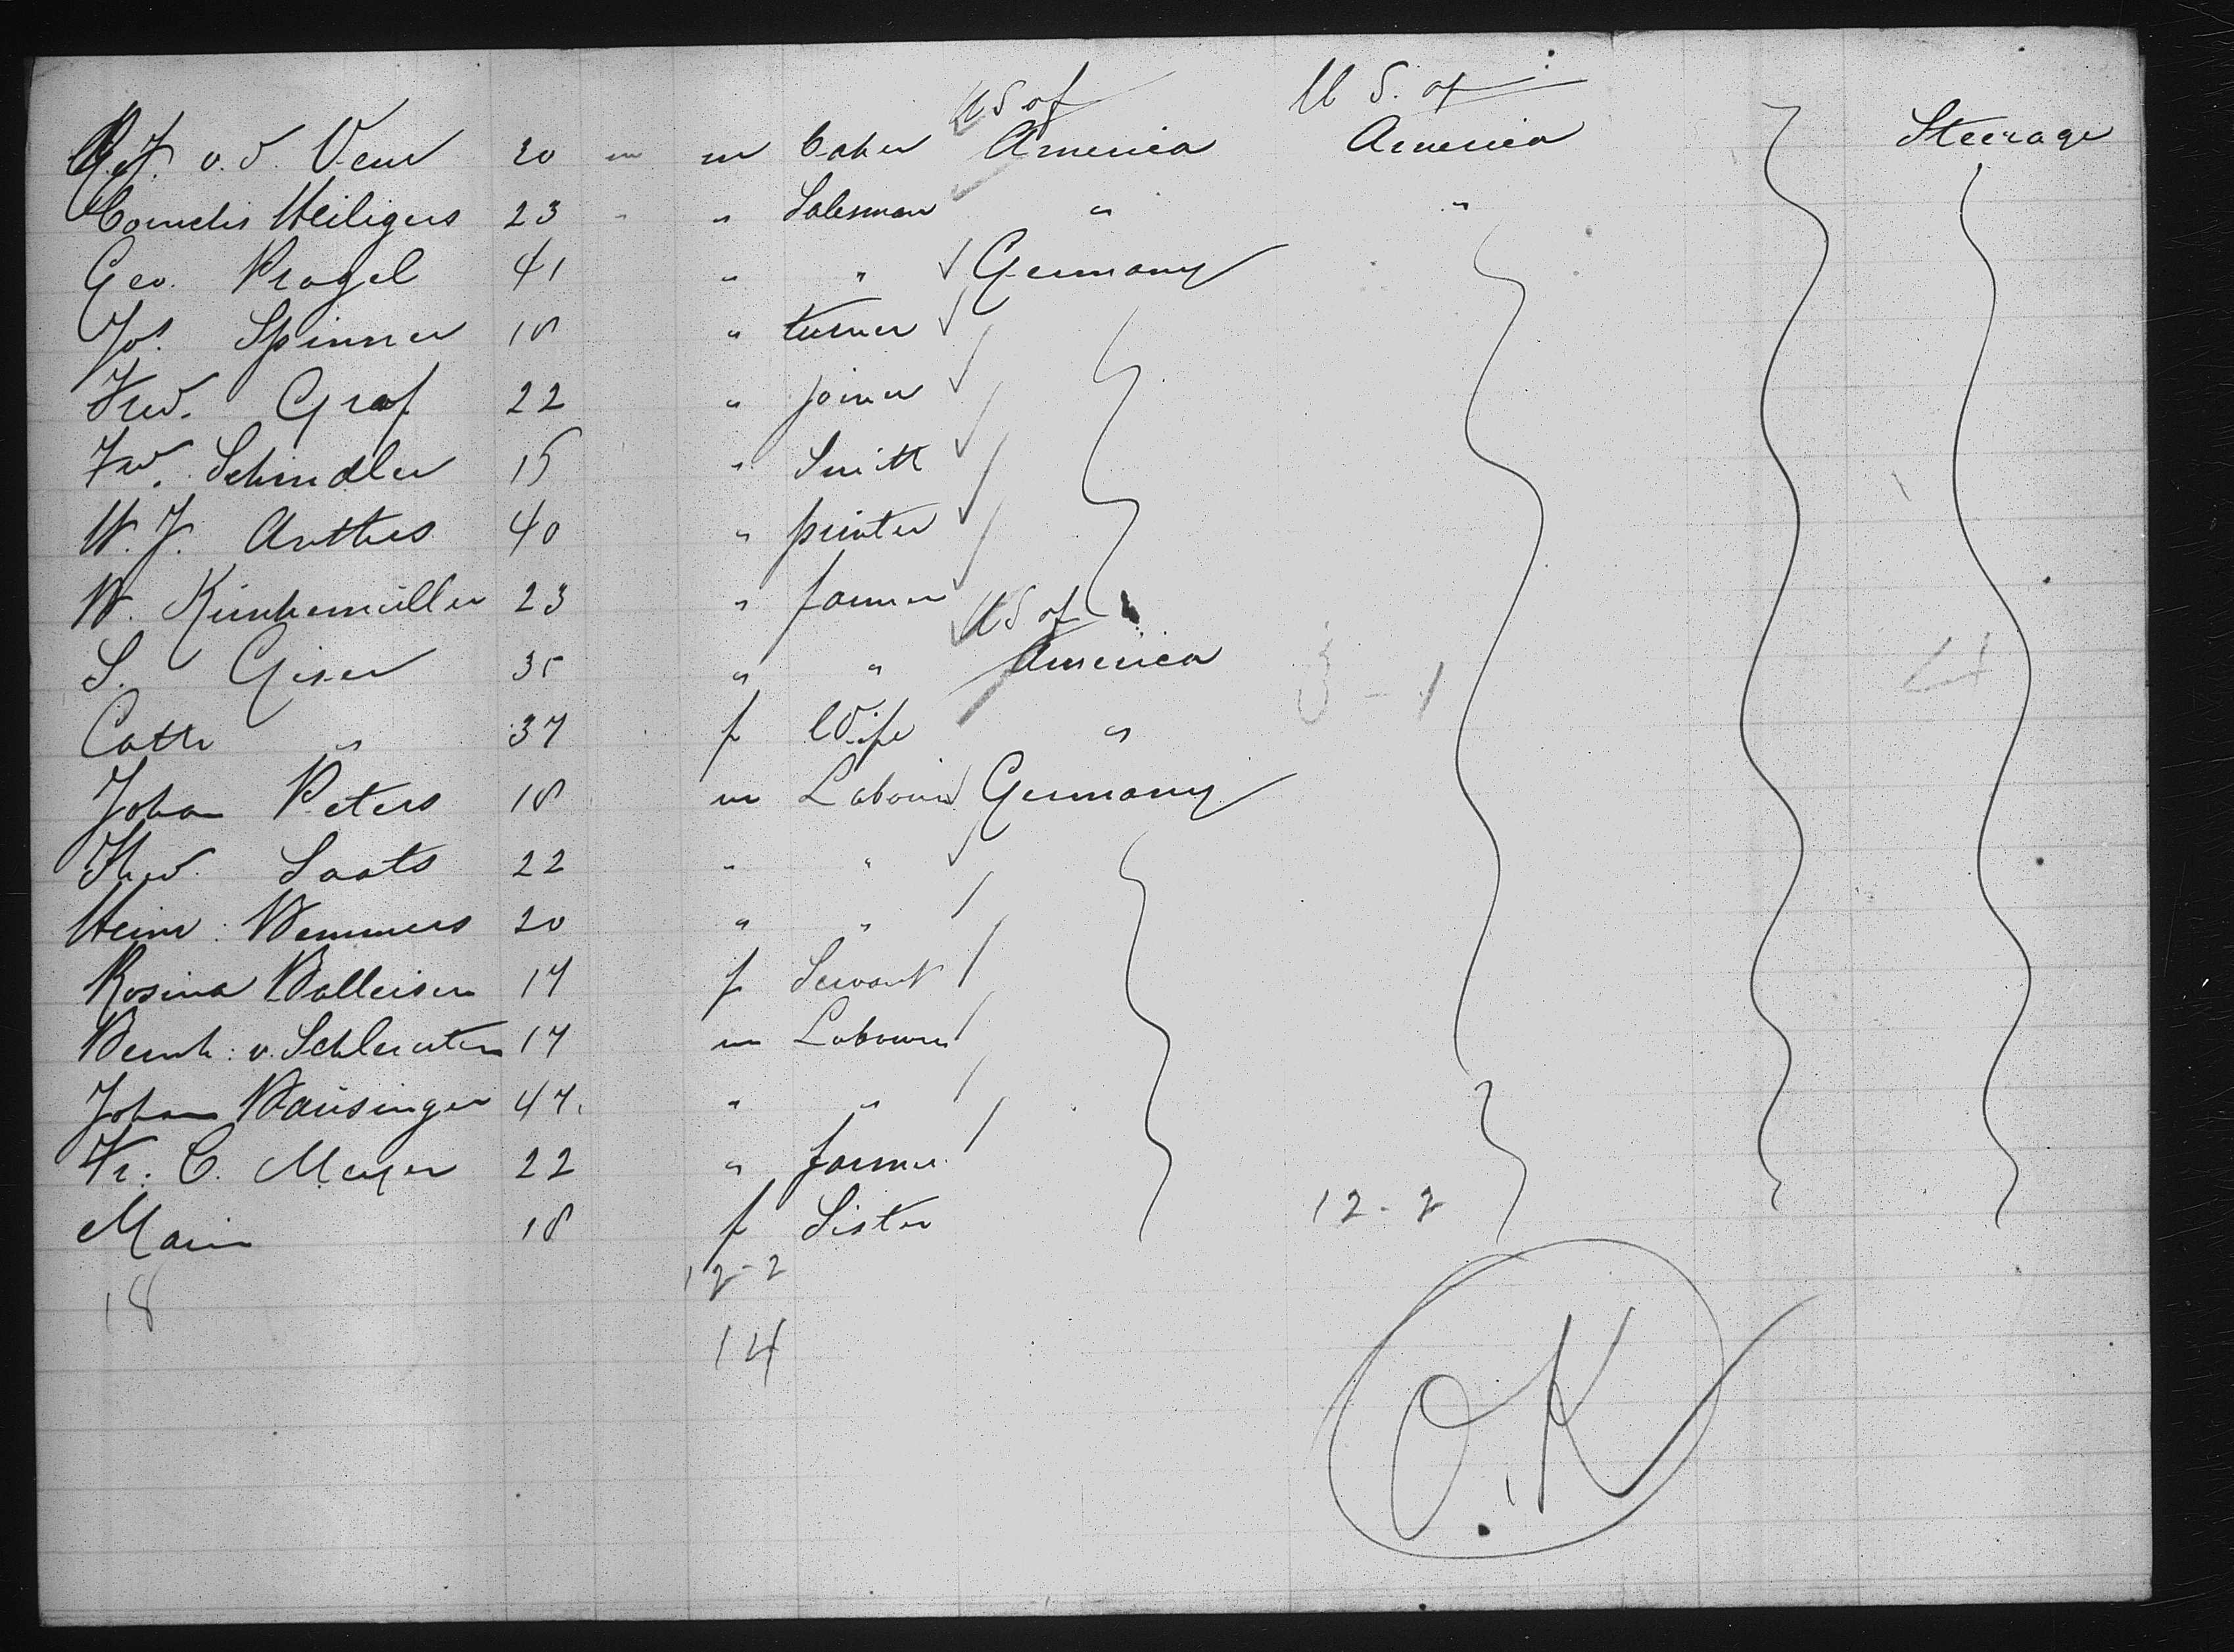 U S of U S. of
v. d. Veur 20 " m baker America America Steerage
Cornelis Heiligers 23 " " Salesman " "
Geo. Pragel 41 " " Germany
Jos. Spinner 18 " turner
Fred. Graf 22 " joiner
Fred. Schindler 15 " Smith
W. J. Anthes 40 " printer
W. 23 " farmer U S of
S. Giser 35 " " America 3 - 1 4
Cath " 37 f Wife "
Johan Peters 18 m Labourer Germany
Saats 22 " "
Heinr: Wemmers 20 " "
Rosina Balleisen 17 f Servant
Bernh: v. 17 m Labourer
Johan Bausinger 47. " "
Fr. C. Mayer 22 " farmer
Marie 18 f Sister 12 - 2
18 12-2
14
O.K